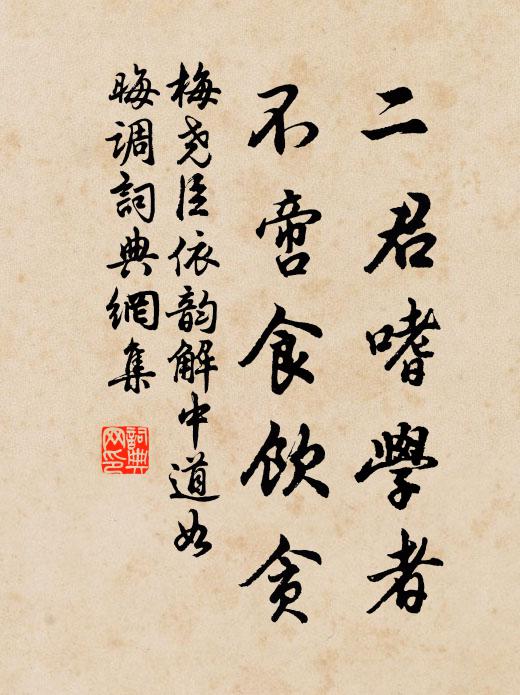 二君嗜學者
不啻食飲貪
梅尧臣依韵解中道如
晦调詞典網集
詞典网印